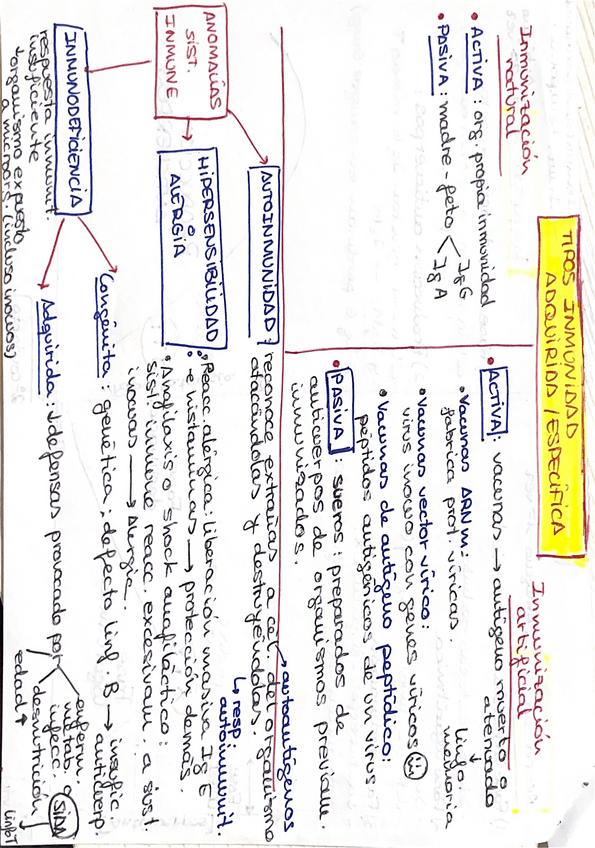 TIPOS INMUNIDAD
ADQUIRIDA / ESPECÍFICA
Inmunización
natural
• ACTIVA : org. propia inmunidad
• PASIVA : madre - feto < IgG
IgA
Inmunización
artificial
• ACTIVA : vacunas → antígeno muerto o
atenuado
↓
linfo.
memoria
• Vacunas ARNm:
fabrica prot. víricas.
• Vacunas vector vírico:
virus inocuo con genes víricos
• Vacunas de antígeno peptídico:
péptidos antigénicos de un virus
• PASIVA : sueros : preparados de
anticuerpos de organismos previam.
inmunizados.
ANOMALÍAS
SIST.
INMUNE
AUTOINMUNIDAD : reconoce extrañas a cel. del organismo
→ autoantígenos
atacándolas y destruyéndolas.
↳ resp. autoinmunit.
HIPERSENSIBILIDAD
O
ALERGIA
: • Reacc. alérgica : liberación masiva Ig E
e histaminas → protección demás.
• Anafilaxis o shock anafiláctico :
sist. inmune reacc. excesivam. a sust.
inocuas → Alergia.
INMUNODEFICIENCIA
respuesta inmunit.
insuficiente
→ organismo expuesto
a microrg. (incluso inocuos)
Congénita : genética : defecto linf. B → insufic.
anticuerp.
Adquirida : ↓ defensas provocado por
enferm.
metab. o
infecc. SIDA
linf T
desnutrición
edad ↑